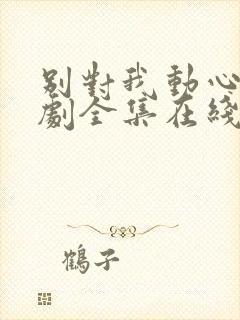 別對我動心
劇全集在綫
鶴子